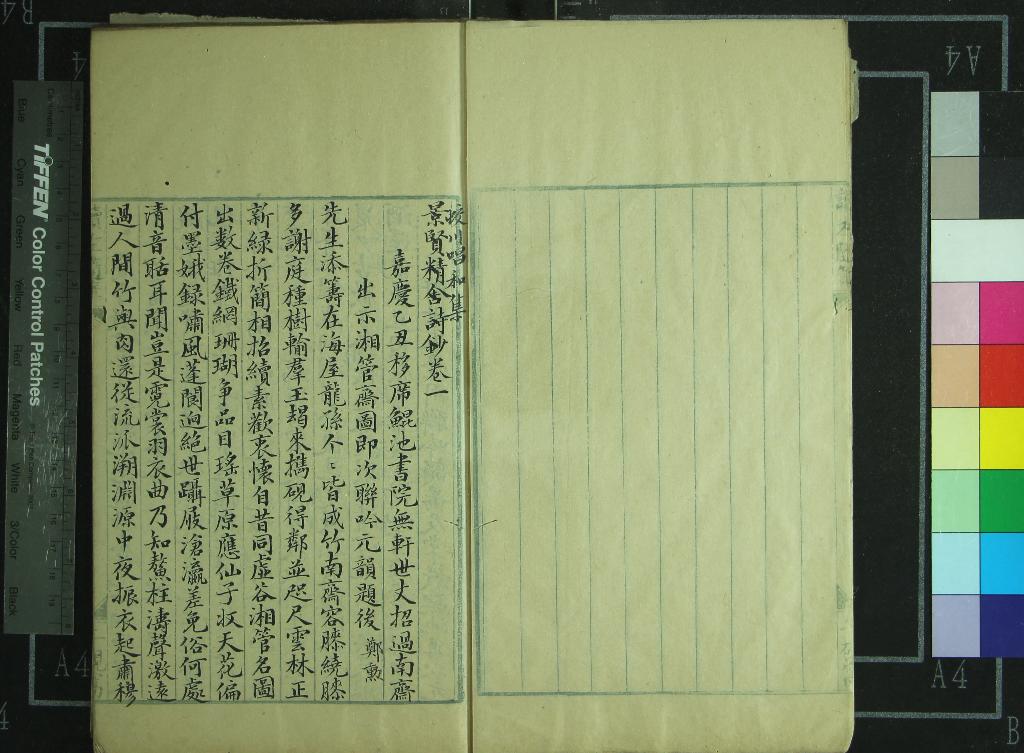 景賢精舍詩鈔卷一
嘉慶乙丑移席鯤池書院無軒世丈招過南齋
出示湘管齋圖即次聯吟元韻題後 鄭勲
先生添籌在海屋龍孫个〻皆成竹南齋容膝繞膝
多謝庭種樹輸羣玉朅來攜硯得鄰並咫尺雲林正
新緑折簡相招續素歡衷懷自昔同虛谷湘管名圖
出数卷鐵網珊瑚争品目瑤草原應仙子收天花偏
付墨娥録嘯風蓬閬迥絶世躡屐滄瀛差免俗何處
清音聒耳聞豈是霓裳羽衣曲乃知鰲柱濤聲激遠
過人間竹與肉還從流派溯淵源中夜振衣起肅穆
TIFFEN Color Control Patches
Blue
Cyan
Green
Yellow
Red
Magenta
White
3/Color
Black
A4
A4
A4
B